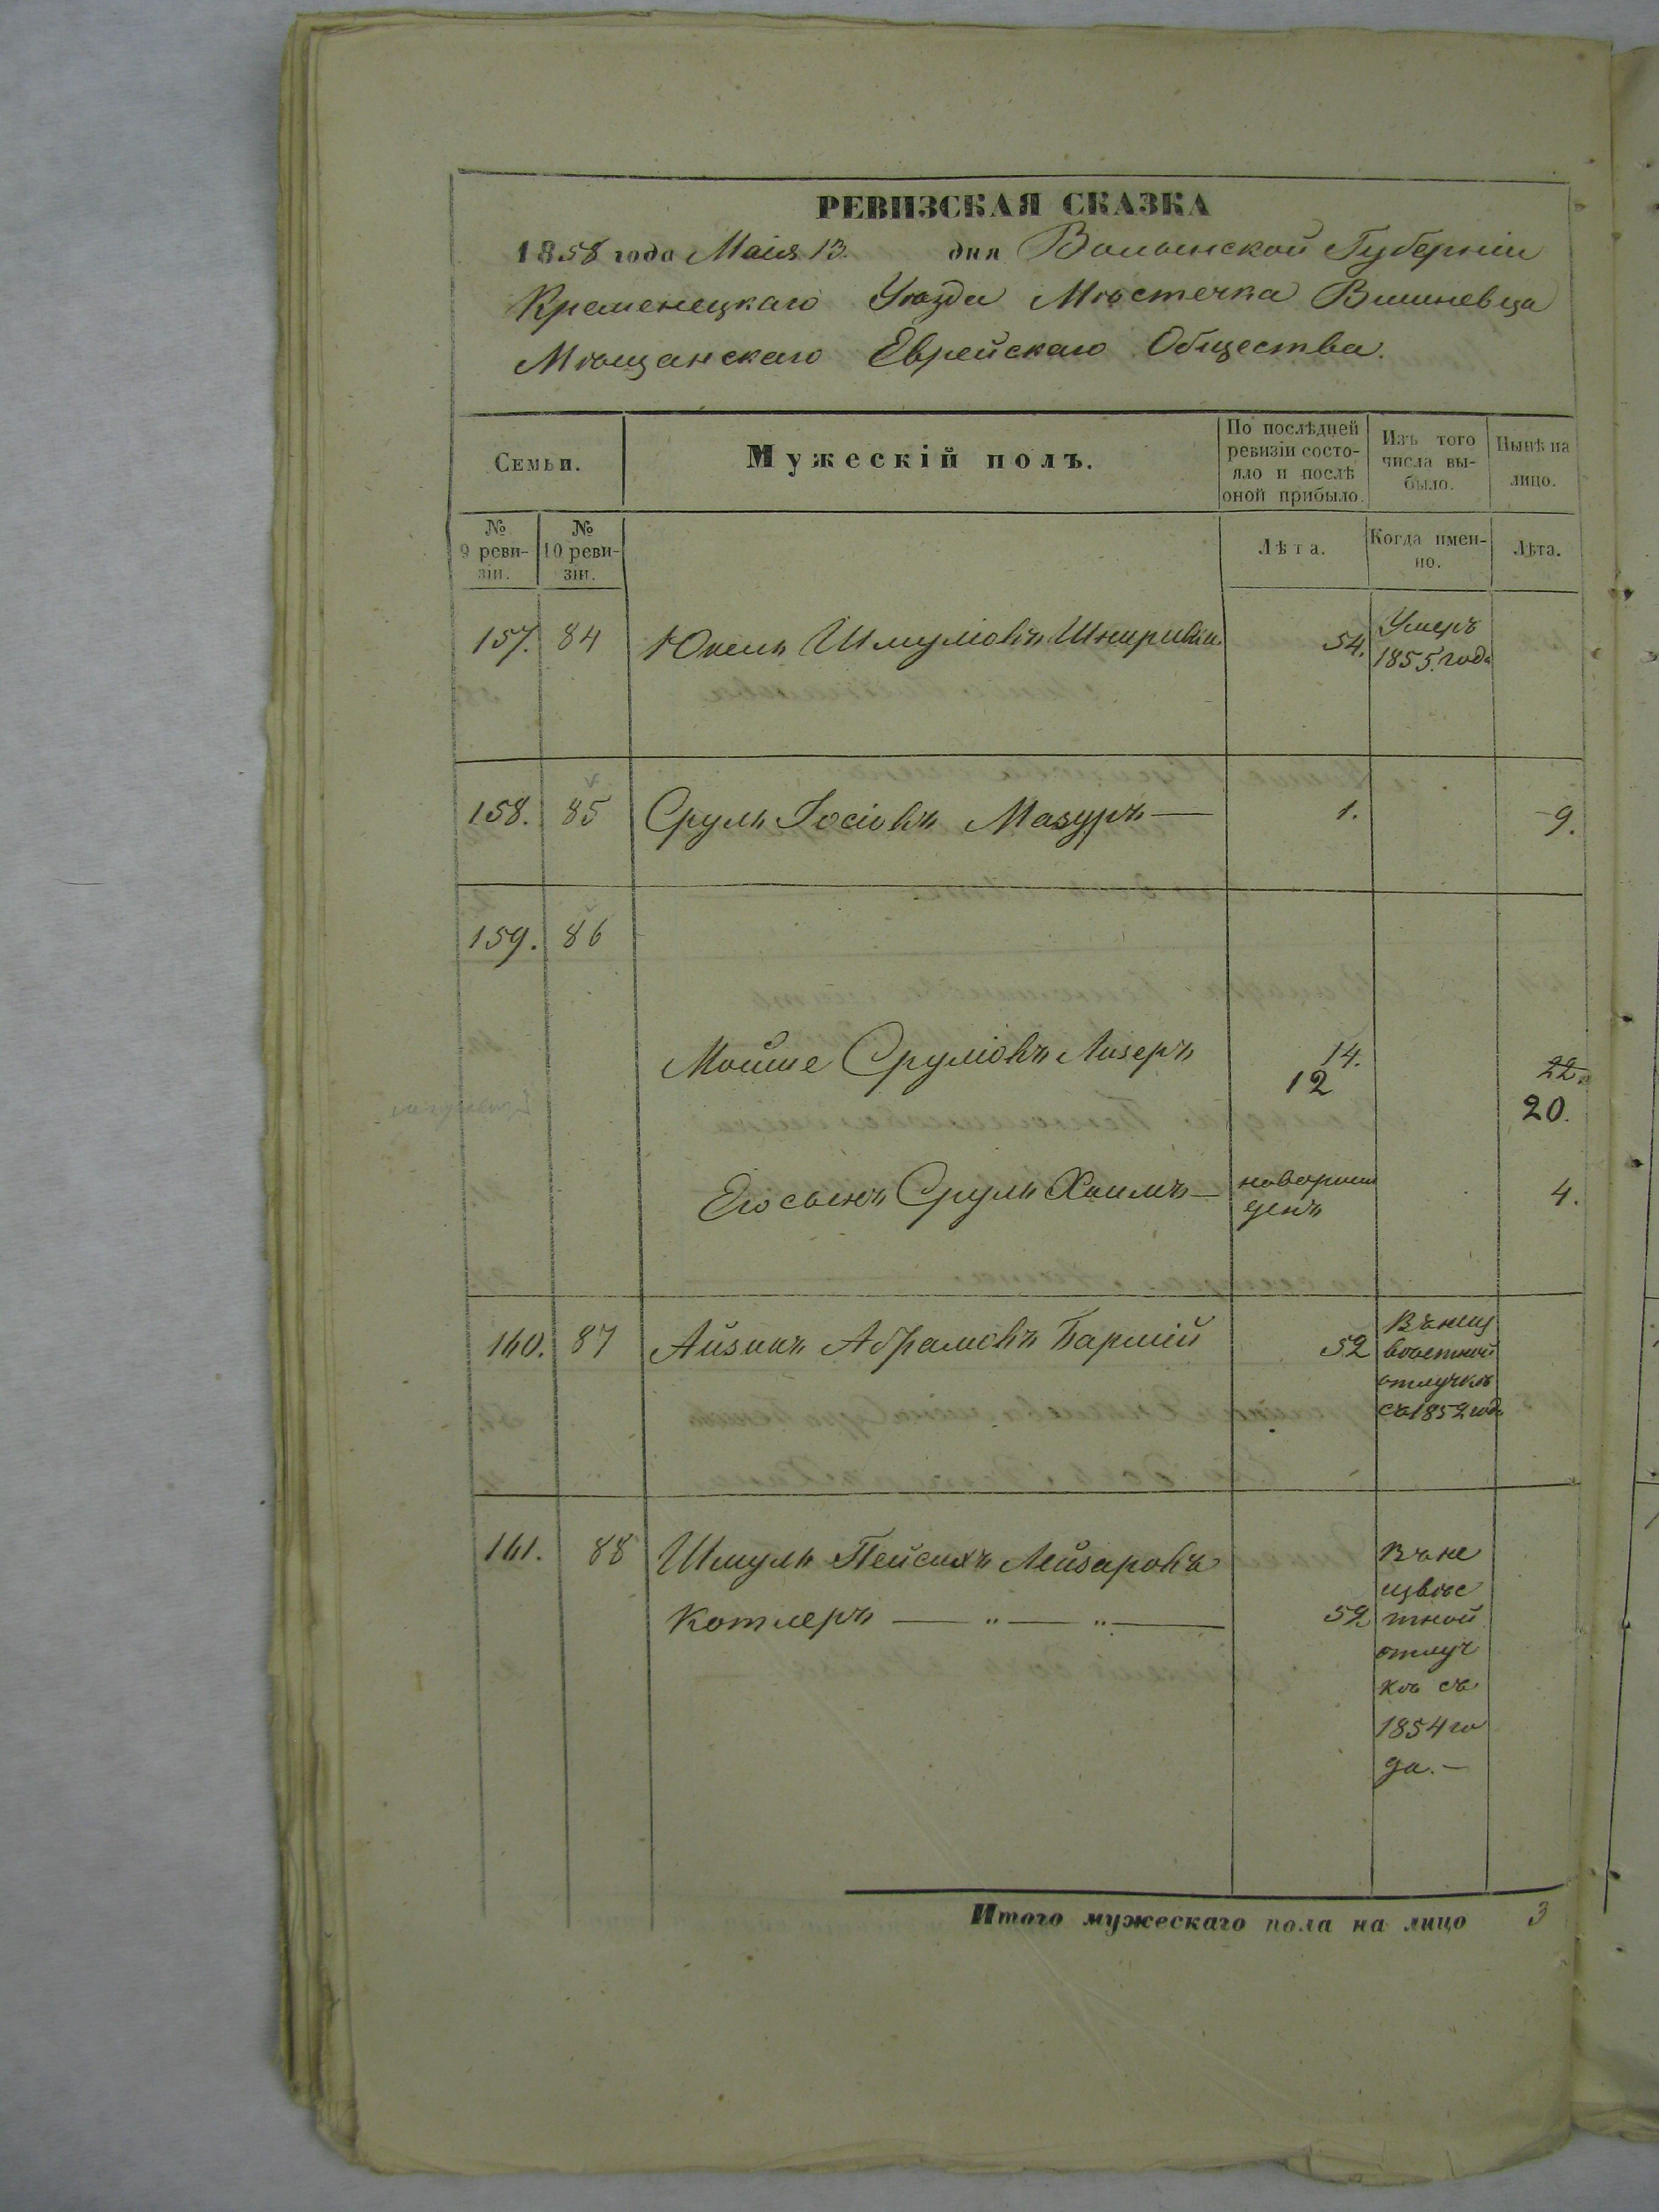 РЕВИЗСКАЯ СКАЗКА
1858 года Маія 13. дня Волынской Губерніи
Кременецкаго Уѣзда Мѣстечка Вишневца
Мѣщанскаго Еврейскаго Общества.
Семьи.
Мужескій полъ.
По послѣдней
ревизіи состо-
яло и послѣ
оной прибыло.
Изъ того
числа вы-
было.
Нынѣ на
лицо.
№
9 реви-
зіи.
№
10 реви-
зіи.
Лѣта.
Когда имен-
но.
Лѣта.
157. 84 Шмуліовъ 54. Умеръ
1855. года
158. 85 Сруль Іосіовъ Мазуръ — 1. 9.
159. 86
Мойше Сруліовъ Лизеръ 14. 22.
12 20.
Его сынъ Сруль Хаимъ — новорож
денъ 4.
160. 87 Айзикъ Абрамовъ 52 Въ неиз
вѣстной
отлучкѣ
съ 1852 года
161. 88 Шмуль Пейсахъ Лейзаровъ
Котлеръ — „ — „ — 52
Въ не
извѣс
тной
отлуч
кѣ съ
1854 го
да. —
Итого мужескаго пола на лицо 3